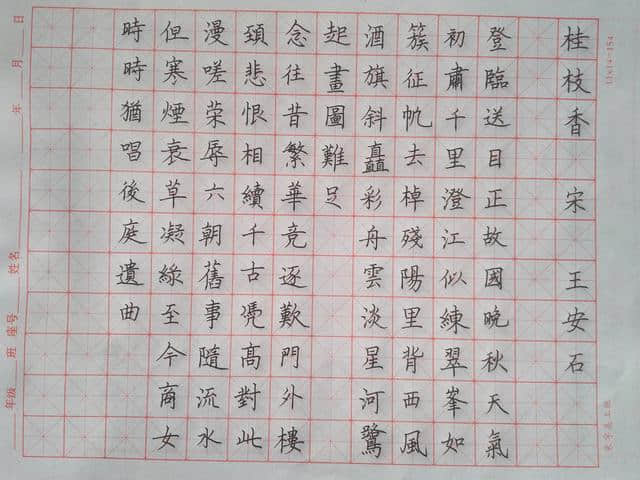 桂枝香 宋 王安石
登臨送目正故國晚秋天氣
初肅千里澄江似練翠峯如
簇征帆去棹殘陽里背西風
酒旗斜矗彩舟雲淡星河鷺
起畫圖難足
念往昔繁華竞逐歎門外樓
頭悲恨相續千古凴高對此
漫嗟荣辱六朝舊事隨流水
但寒煙衰草凝綠至今商女
時時猶唱後庭遺曲
年级 班 座号 姓名 年 月 日
11x14=154